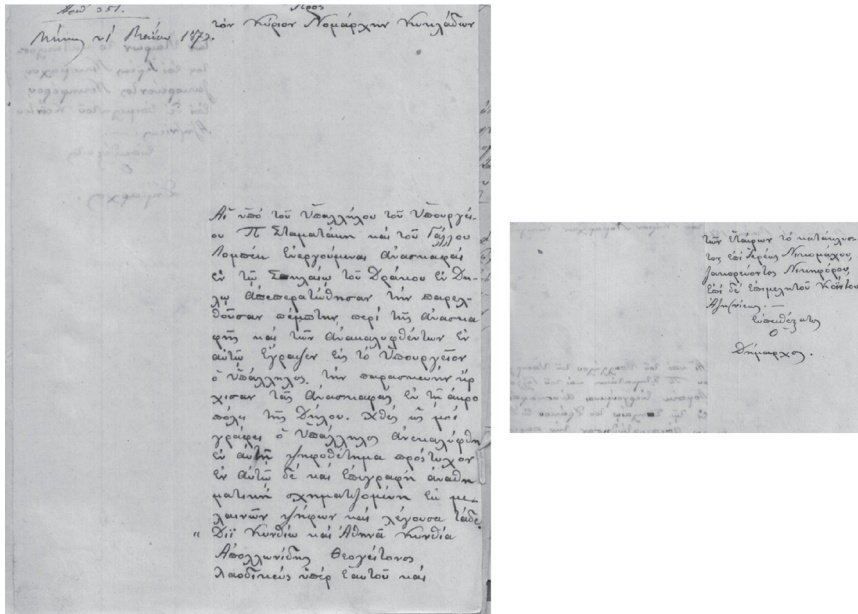 Αριθ 351.
Μύκονος 21 Μαΐου 1873.
Προς
τον Κύριον Νομάρχην Κυκλάδων
Αἱ ὑπό τοῦ Ὑπαλλήλου τοῦ Ὑπουργεί-
ου Π Σταματάκη καί τοῦ Γάλλου
Λομπέκ ἐνεργούμεναι ἀνασκαφαί
ἐν τῷ Σπηλαίῳ τοῦ Δράκου ἐν Δή-
λῳ ἀπεπερατώθησαν τήν παρελ-
θοῦσαν πέμπτην, περί τῆς ἀνασκα
φῆς καί τῶν ἀνακαλυφθέντων ἐν
αὐτῷ ἔγραψεν εἰς τό Ὑπουργεῖον
ὁ ὑπάλληλος, τήν παρασκευήν ἤρ
χισαν τάς ἀνασκαφάς ἐν τῇ ἀκρο
πόλει τῆς Δήλου. Χθές ὡς μοί
γράφει ὁ Ὑπάλληλος ἀνεκαλύφθη
ἐν αὐτῇ ψηφοθέτημα πρόστυχον
ἐν αὐτῷ δέ καί ἐπιγραφή ἀναθη
ματική σχηματιζομένη ἐκ με-
λαινῶν ψήφων καί λέγουσα τάδε
" Διΐ Κυνθίῳ καί Ἀθηνᾷ Κυνθίᾳ
Ἀπολλωνίδης Θεογείτονος
Λαοδικεύς ὑπέρ ἑαυτοῦ καί
τῶν ἑταίρων τό κατάκλυστον
ἐπί ἱερέως Νικομάχου,
ζακορεύοντος Νικηφόρου,
ἐπί δέ ἐπιμελητοῦ Κοΐντου
Ἀζηνιέως. —
Εὐπειθέστατος
Ὁ
Δήμαρχος.